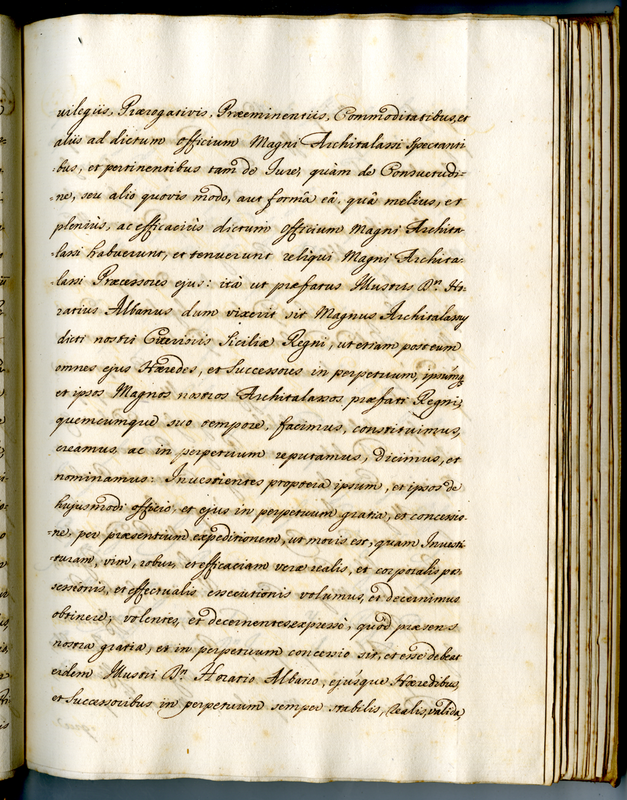 uilegijs, Prærogativis, Præeminentiis, Commoditatibus, et
aliis ad dictum officium Magni Architalassi Spectanti
-bus, et pertinentibus tam de Jure, quàm de Consuetudi=
=ne, seu alio quovis modo, aut formâ eâ, quâ melius, et
pleniùs, ac efficaciùs dictum officium Magni Archita
-lassi habuerunt, et tenuerunt reliqui Magni Archita-
-lassi Præcessores ejus: ità ut præfatus Illustris Dn. Ho-
ratius Albanus dum vixerit sit Magnus Architalassus
dicti nostri Citerioris Siciliæ Regni, ut etiam post eum
omnes ejus Hæredes, et Successores in perpetuum, ipsumq
et ipsos Magnos nostros Architalassos præfati Regni,
quemcumque suo tempore, facimus, constituimus,
creamus, ac in perpetuum reputamus, dicimus, et
nominamus: Investientes proptereà ipsum, et ipsos de
hujusmodi officio, et ejus in perpetuum gratia, et concessio
-ne, per præsentium expeditionem, ut moris est, quam Investi-
-turam, vim, robur, et efficaciam veræ realis, et corporalis pos
sessionis, et effectualis assecutionis volumus, et decernimus
obtinere; volentes, et decernentes expressè, quòd præsens
nostra gratia, et in perpetuum concessio sit, et esse debeat
eidem Illustri Dn. Horatio Albano, ejúsque Hæredibus,
et Successoribus in perpetuum semper stabilis, realis, valida,